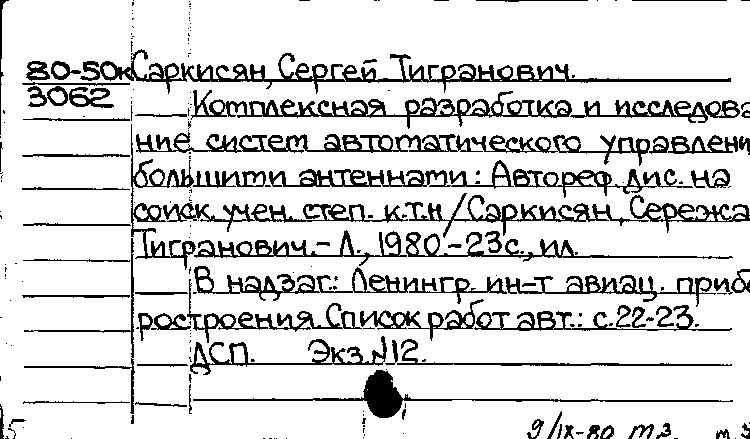 80-50к Саркисян, Сергей Тигранович.
3062 Комплексная разработка и исследова
ние систем автоматического управлени
большими антеннами: Автореф. дис. на
соиск. учен. степ. к.т.н / Саркисян, Сережа
Тигранович.- Л., 1980.-23с., ил.
В надзаг.: Ленингр. ин-т авиац. прибо
ростроения. Список работ авт.: с.22-23.
ДСП. Экз.N12.
5 9/IX-80 тз. т з